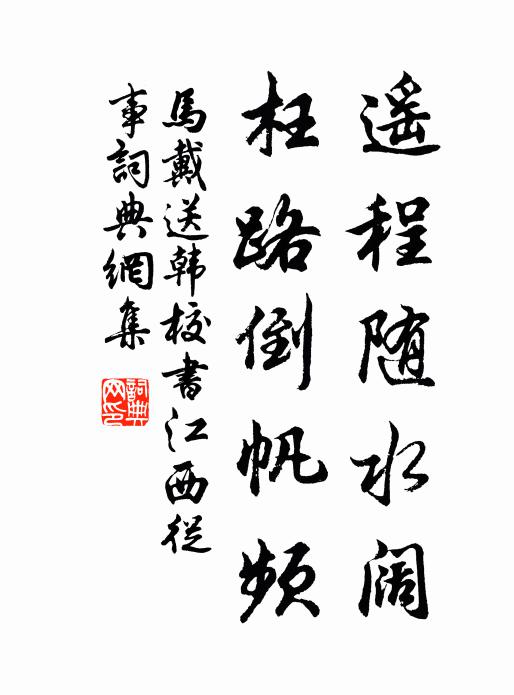 遥程随水阔
枉路倒帆频
馬戴送韩校書江西従
事詞典網集
詞典
网印